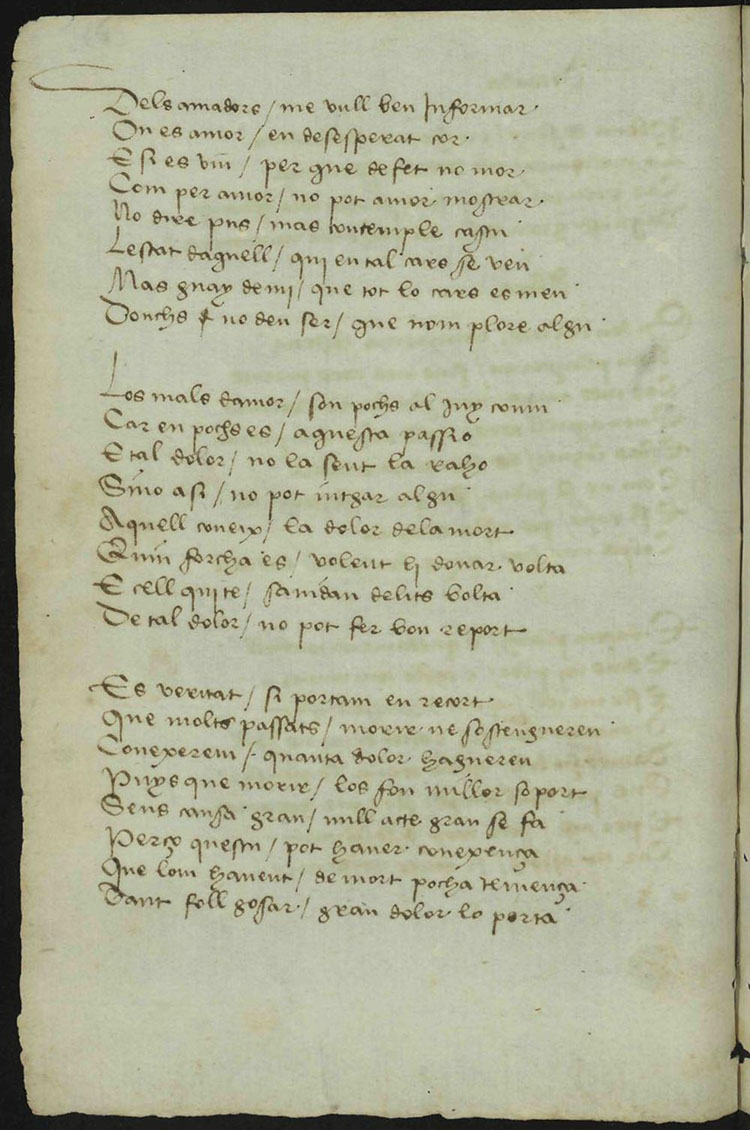 Dels amadors / me vull ben Informar
On es amor / en desesperat cor
E si es viu / per que de fet no mor
Com per amor / no pot amor mostrar
No dire pus / mas contemple cascu
Lestat daquell / qui en tal cars se veu
Mas guay de mi / que tot lo cars es meu
Donchs no deu ser / que nom plore algu
Los mals damor / son pochs al Juy comu
Car en pochs es / aquesta passio
E tal dolor / no la sent la raho
Sino asi / no pot jutgar algu
Aquell coneix / la dolor dela mort
Quin forcha es / volent hi donar volta
E cell qui te / sanidau delits volta
De tal dolor / no pot fer bon report
Es veritat / si portam en recort
Que molts passats / morir ne sostengueren
Conexerem / quanta dolor hagueren
Puys que morir / los fon millor soport
Sens causa gran / null acte gran se fa
Perço quescu / pot haver conexença
Que lom havent / de mort pocha temença
Tant foll gosar / gran dolor lo porta